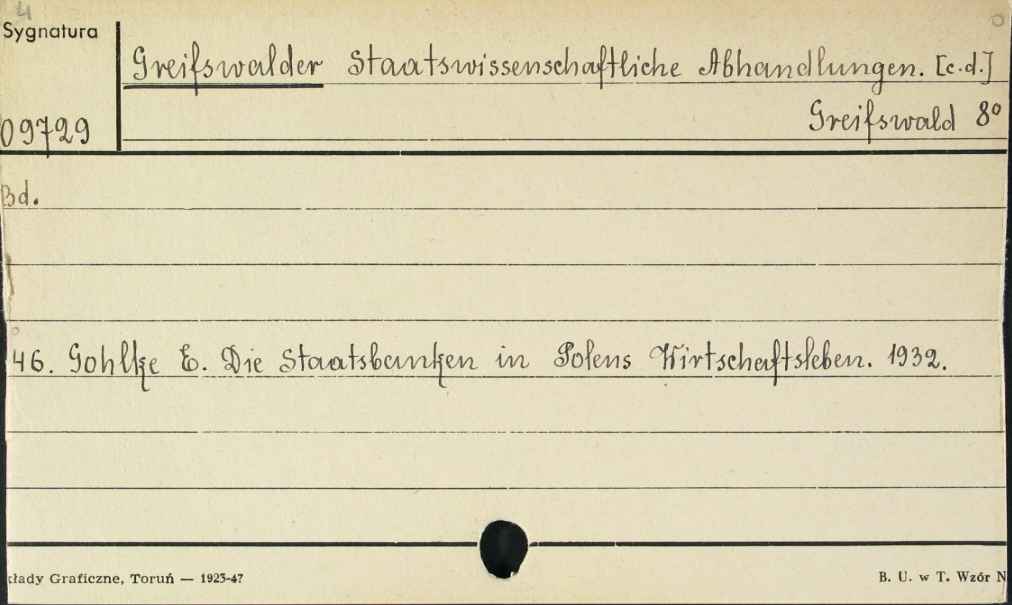 4
Sygnatura
Greifswalder Staatswissenschaftliche Abhandlungen. [c.d.]
Greifswald 8º
09729
Bd.
46. Gohlke E. Die Staatsbanken in Polens Wirtschaftsleben. 1932.
kłady Graficzne, Toruń — 1923-47
B. U. w T. Wzór N